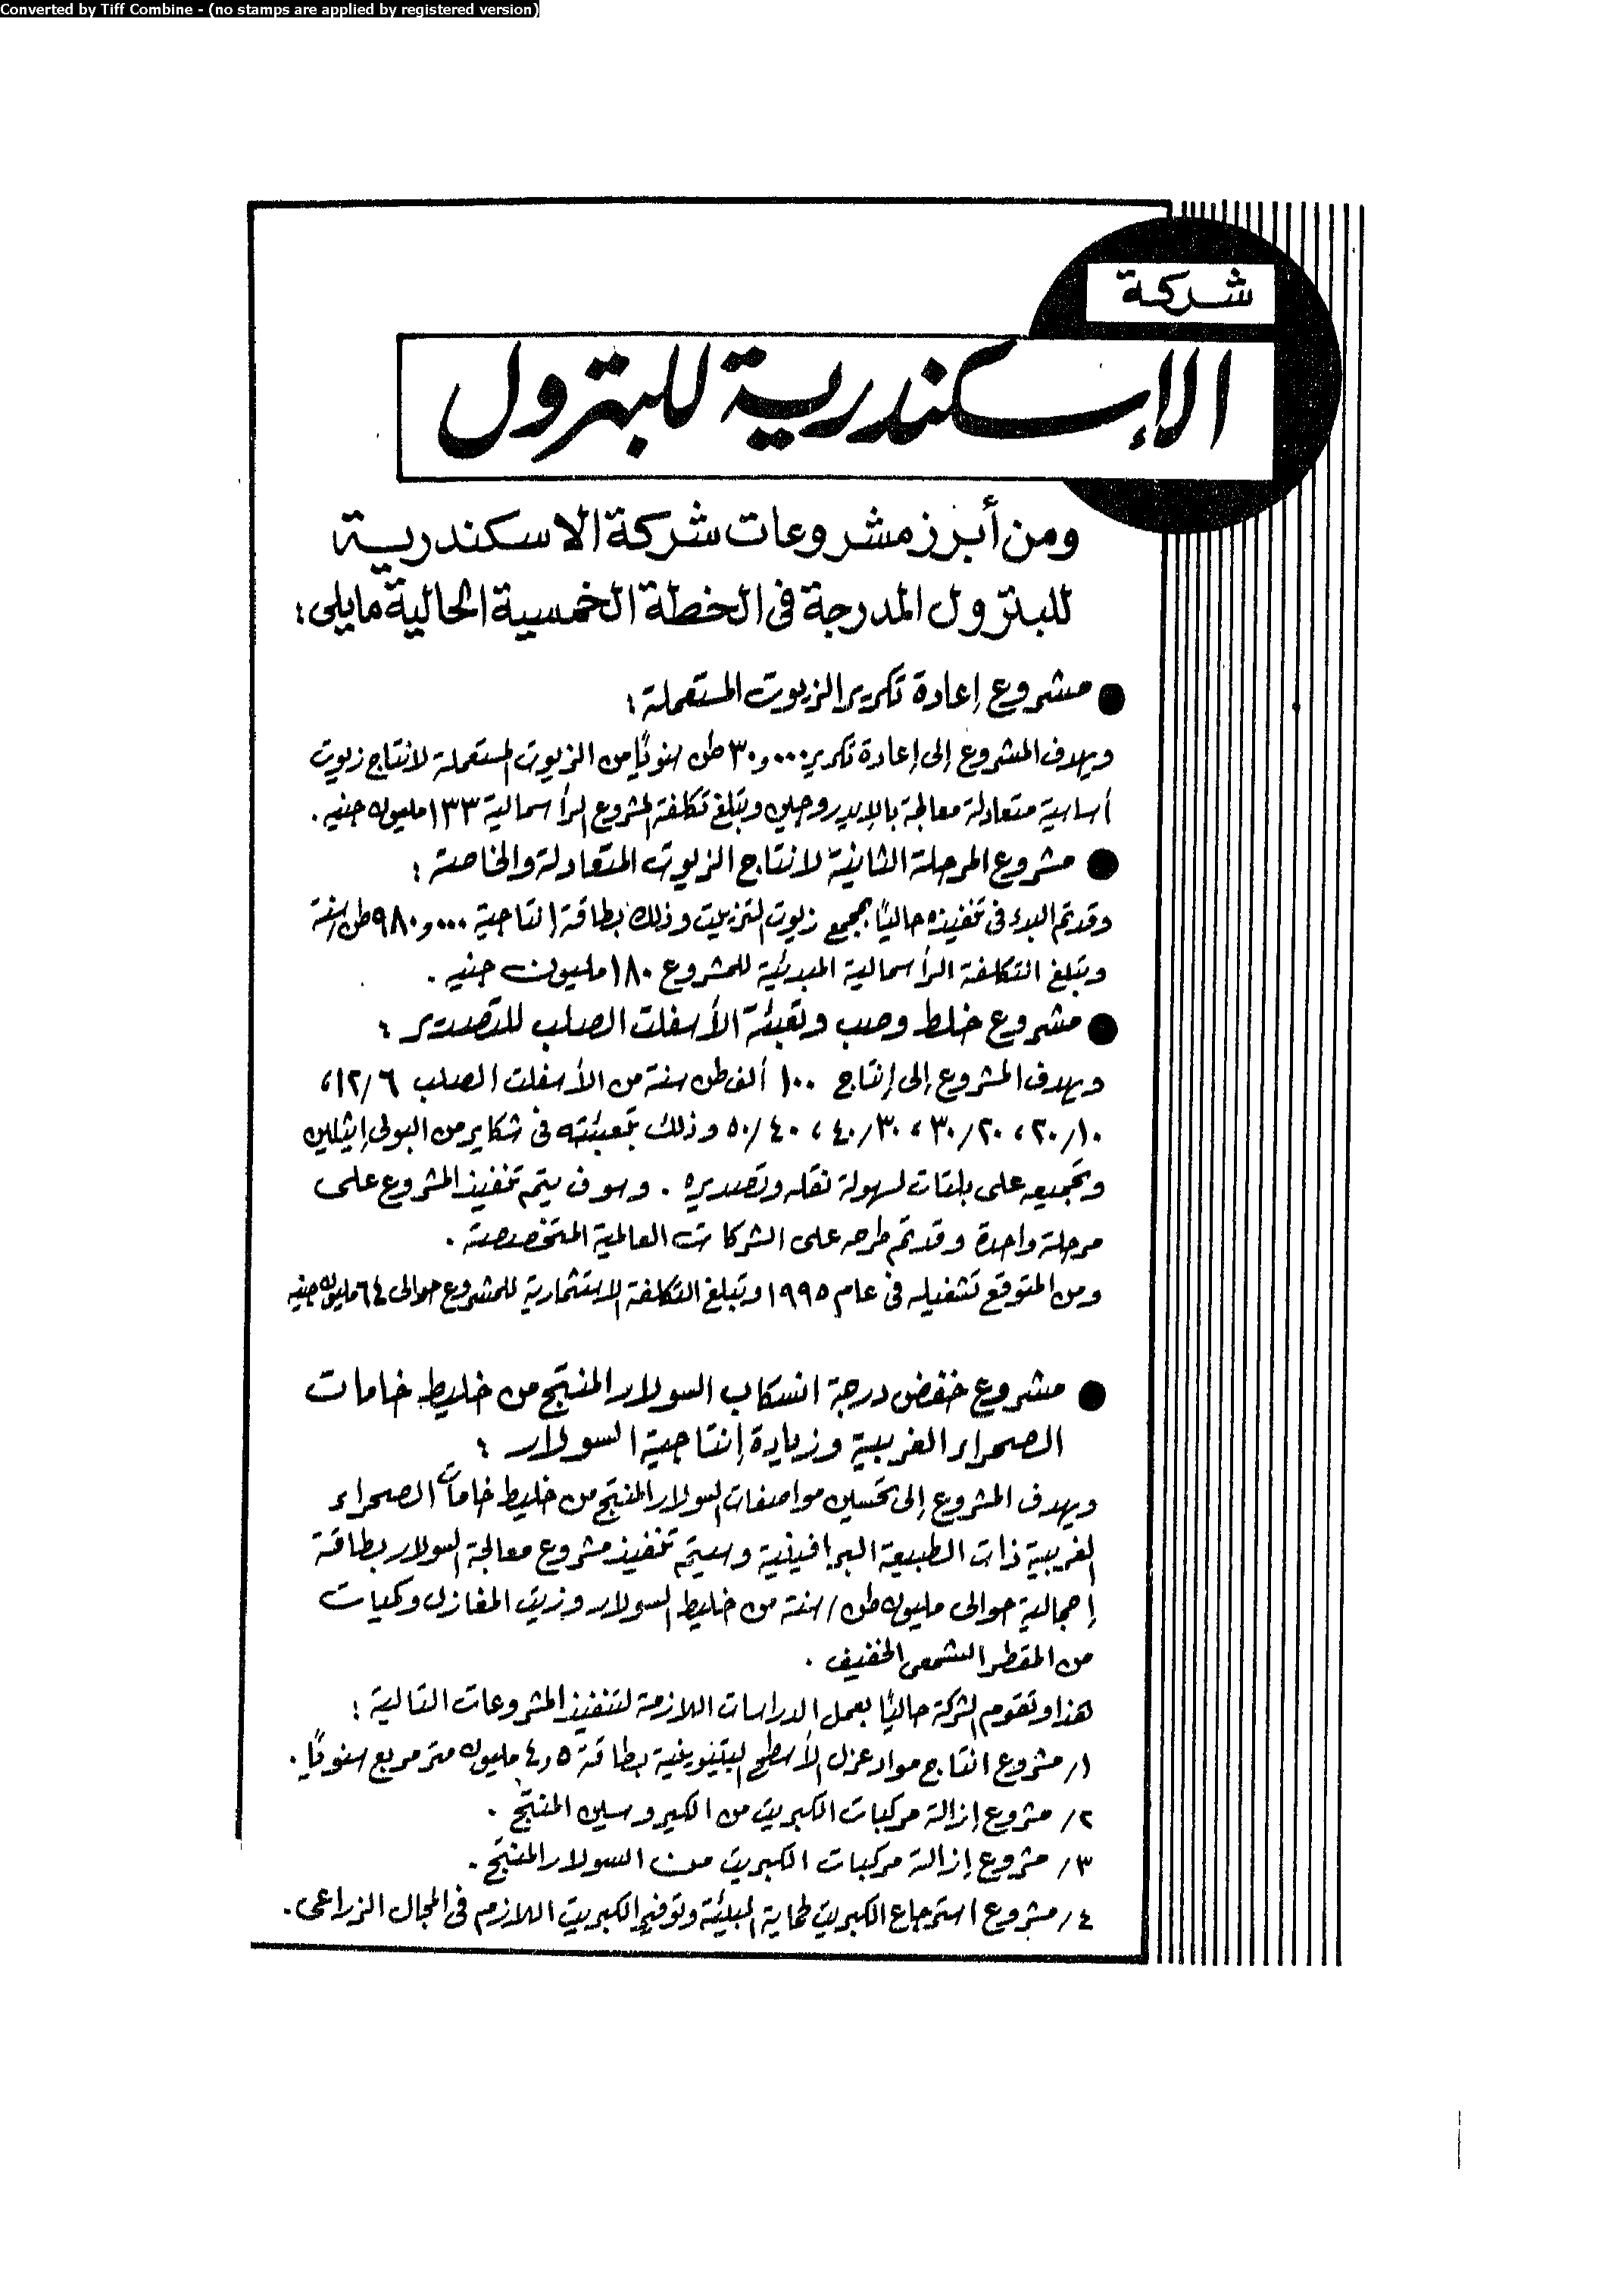 Converted by Tiff Combine - (no stamps are applied by registered version)
شركة
الإسكندرية للبترول
ومن أبرز مشروعات شركة الاسكندرية
للبترول المدرجة فى الخطة الخمسية الحالية مايلى:
● مشروع إعادة تكرير الزيوت المستعملة:
ويهدف المشروع إلى إعادة تكرير ٣٠,٠٠٠ طن سنويًا من الزيوت المستعملة لانتاج زيوت
أساسية متعادلة معالجة بالإيدروجين وتبلغ تكلفة المشروع الرأسمالية ١٣٣ مليون جنيه.
● مشروع المرحلة الثانية لانتاج الزيوت المتعادلة والخاصة:
وقد تم البدء فى تنفيذه حاليًا بمجمع زيوت التزييت وذلك بطاقة إنتاجية ٩٨٠,٠٠٠ طن/سنة
وتبلغ التكلفة الرأسمالية المبدئية للمشروع ١٨٠ مليون جنيه.
● مشروع خلط وصب وتعبئة الأسفلت الصلب للتصدير:
ويهدف المشروع إلى إنتاج ١٠٠ ألف طن سنة من الأسفلت الصلب ١٢/٦،
٢٠/١٠، ٣٠/٢٠، ٤٠/٣٠، ٥٠/٤٠ وذلك بتعبئته فى شكاير من البولى إيثلين
وتجميعه على بلتات لسهولة نقله وتصديره. وسوف يتم تنفيذ المشروع على
مرحلة واحدة وقد تم طرحه على الشركات العالمية المتخصصة.
ومن المتوقع تشغيله فى عام ١٩٩٥ وتبلغ التكلفة الاستثمارية للمشروع حوالى ٦٤ مليون جنيه
● مشروع خفض درجة انسكاب السولار المنتج من خليط خامات
الصحراء الغربية وزيادة إنتاجية السولار:
ويهدف المشروع إلى تحسين مواصفات السولار المنتج من خليط خامات الصحراء
الغربية ذات الطبيعة البرافينية وسيتم تنفيذ مشروع معالجة السولار بطاقة
إجمالية حوالى مليون طن/سنة من خليط السولار وزيت المغازل وكميات
من المقطر الشمعى الخفيف.
هذا وتقوم الشركة حاليًا بعمل الدراسات اللازمة لتنفيذ المشروعات التالية:
١/ مشروع انتاج مواد عزل الأسطح البيتومينية بطاقة ٤,٥ مليون متر مربع سنويًا.
٢/ مشروع إزالة مركبات الكبريت من الكيروسين المنتج.
٣/ مشروع إزالة مركبات الكبريت من السولار المنتج.
٤/ مشروع استرجاع الكبريت لحماية البيئة وتوفير الكبريت اللازم فى المجال الزراعى.